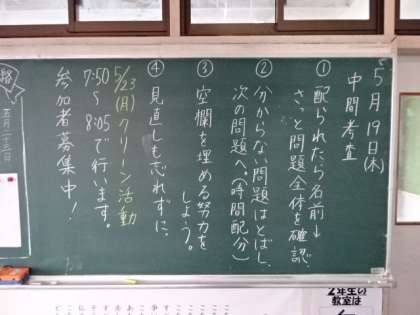 5月19日(木)
中間考査
① 配られたら名前↓
さっと問題全体を確認。
② 分からない問題はとばし、
次の問題へ。(時間配分)
③ 空欄を埋める努力を
しよう。
④ 見直しも忘れずに。
5/23(月)クリーン活動
7:50
~
8:05で行います。
参加者募集中!
路
五月二十三日
2年生の
教室は